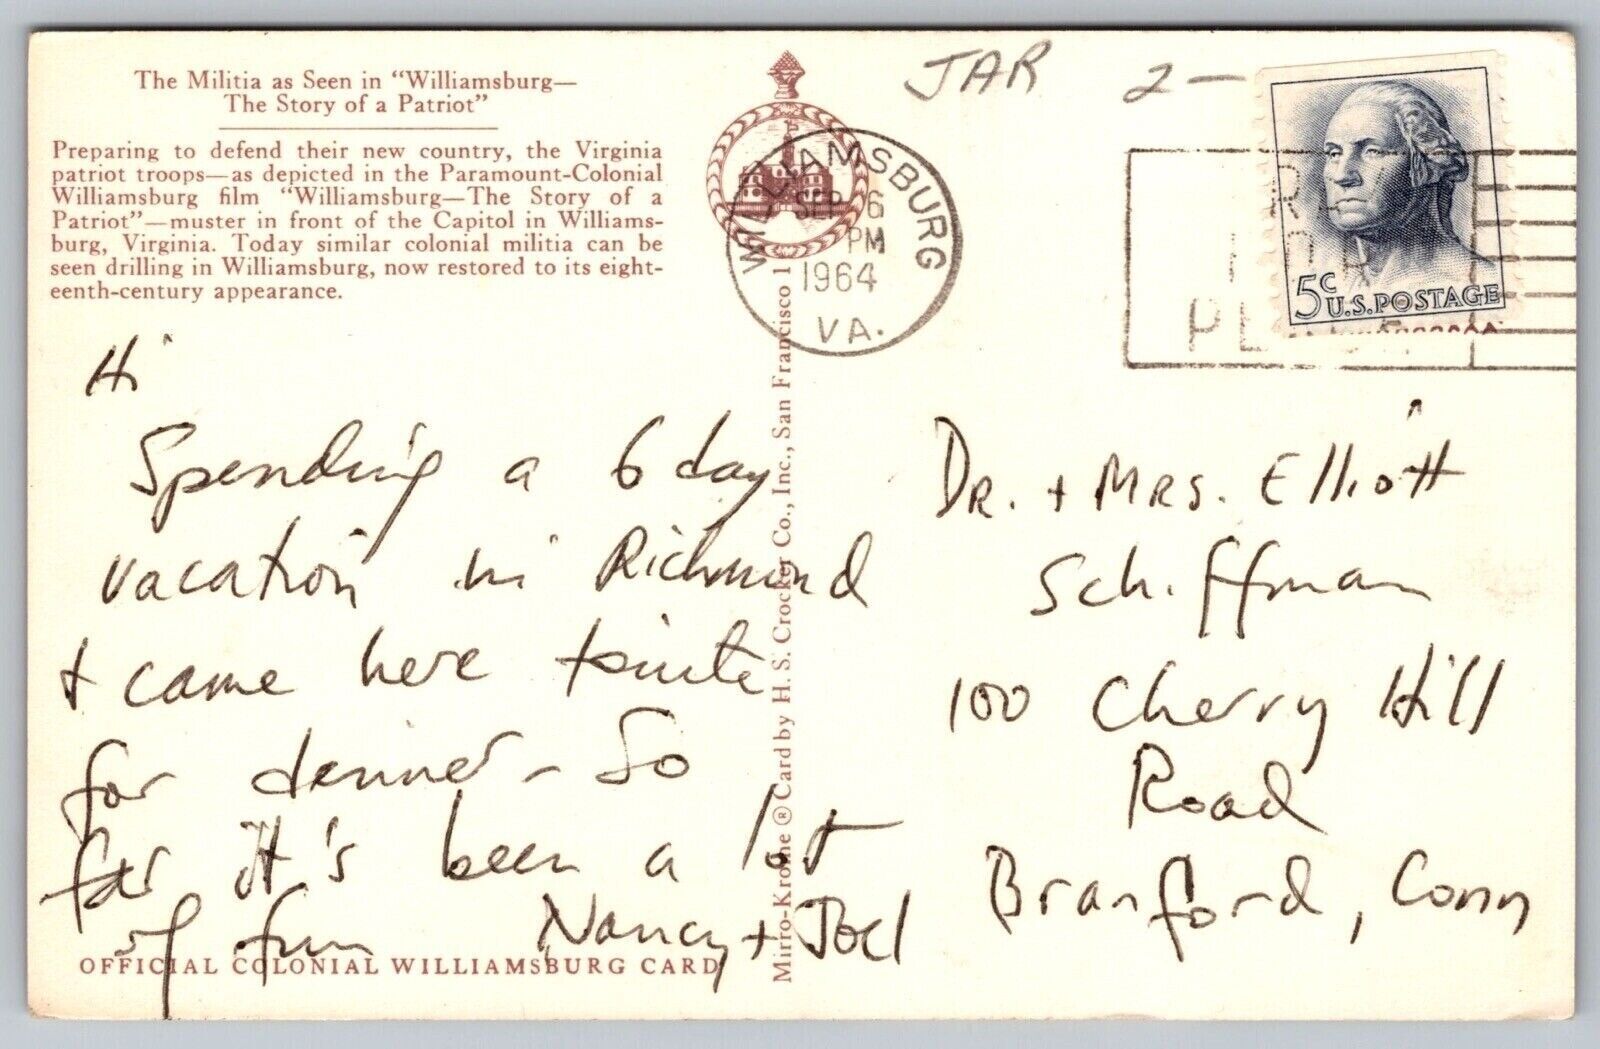 The Militia as Seen in "Williamsburg—
The Story of a Patriot"
Preparing to defend their new country, the Virginia
patriot troops—as depicted in the Paramount-Colonial
Williamsburg film "Williamsburg—The Story of a
Patriot"—muster in front of the Capitol in Williams-
burg, Virginia. Today similar colonial militia can be
seen drilling in Williamsburg, now restored to its eight-
eenth-century appearance.
Hi
Spending a 6 day
vacation in Richmond
+ came here tonite
for dinner - So
far It's been a lot
of fun Nancy + Joel
OFFICIAL COLONIAL WILLIAMSBURG CARD
Mirro-Krome ® Card by H. S. Crocker Co., Inc., San Francisco 1
JAR 2-
WILLIAMSBURG
SEP 6
PM
1964
VA.
5c U.S. POSTAGE
DR. + MRS. Elliott
Schiffman
100 Cherry Hill
Road
Branford, Conn